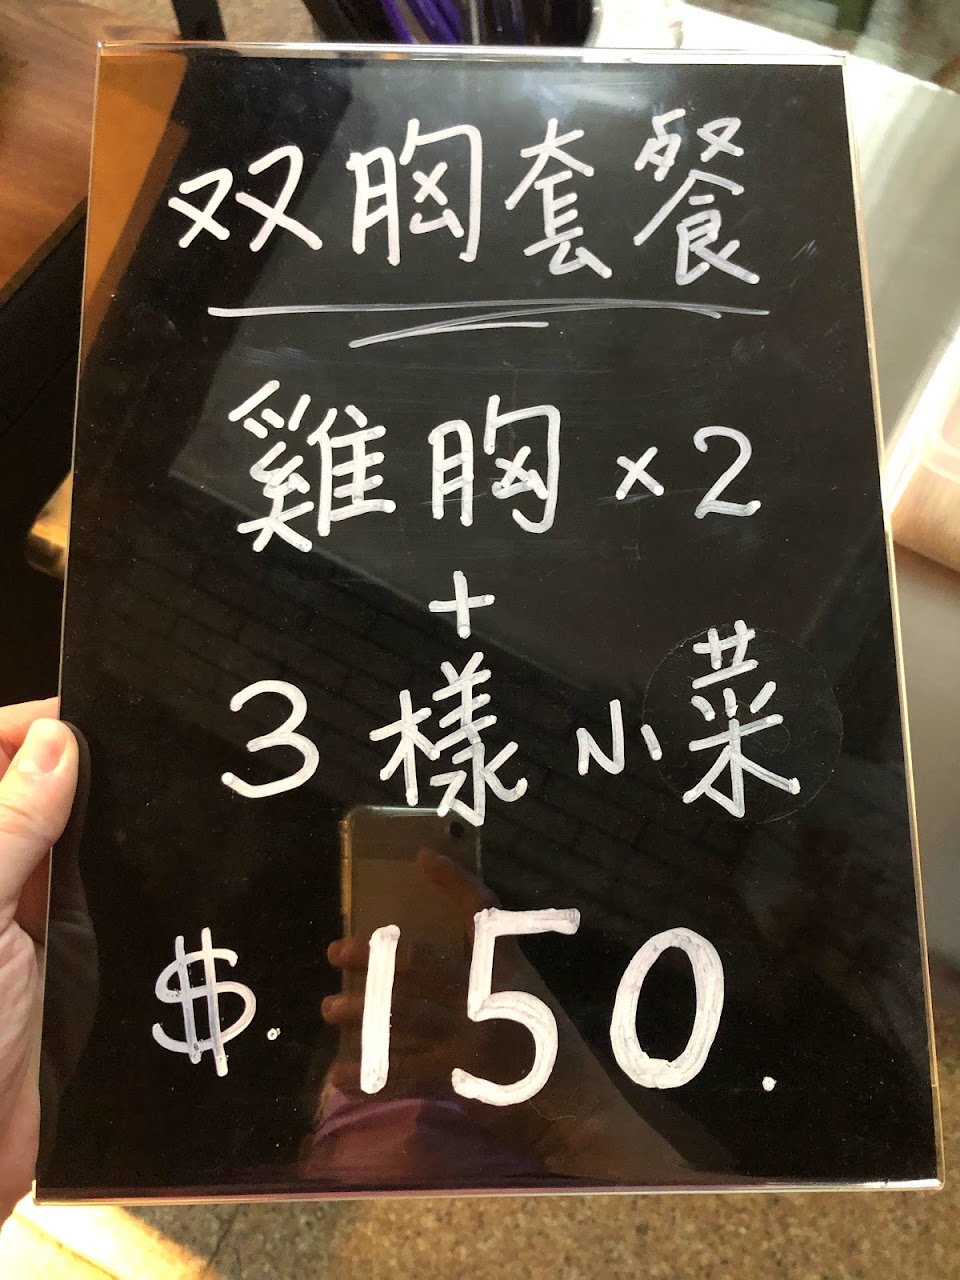 双胸套餐
雞胸×2
+
3樣小菜
$.150.